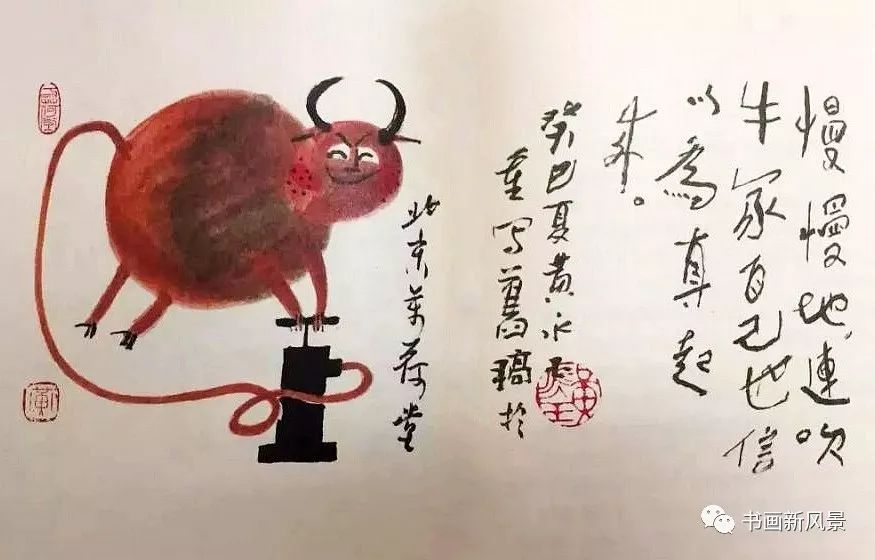 慢慢地，連吹
牛家自己也信
以為真起
来。
癸巳夏黄永玉
重写舊稿於
北京萬荷堂
书画新风景